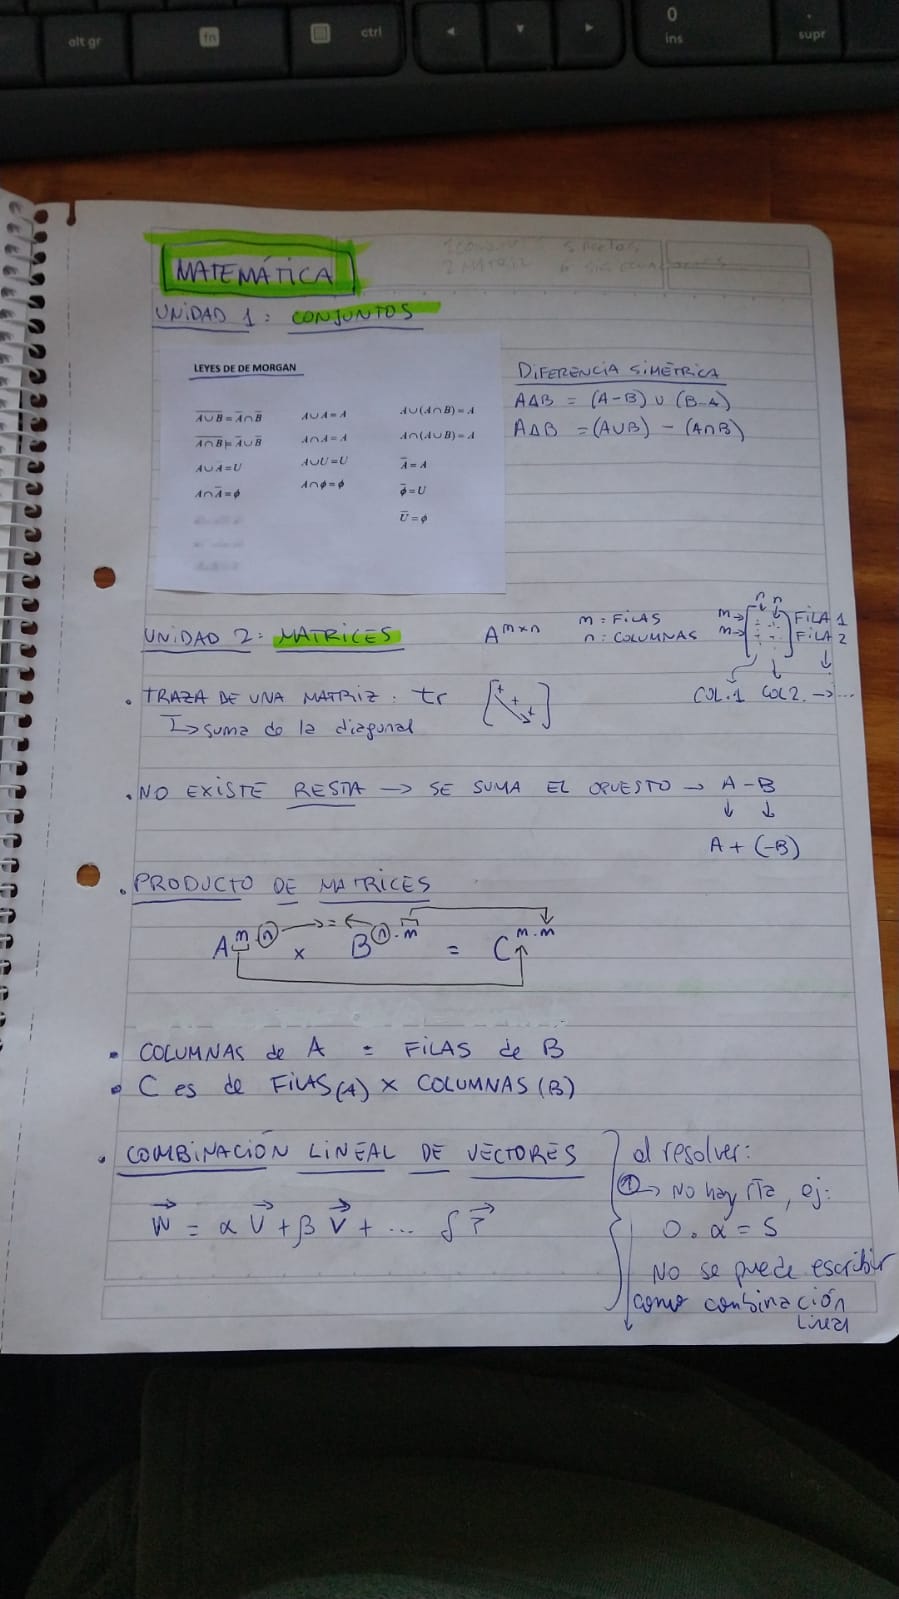 alt gr fn ctrl 0 ins . supr
MATEMÁTICA
UNIDAD 1: CONJUNTOS
LEYES DE DE MORGAN
A̅∪̅B̅ = A̅∩B̅ A∪A=A A∪(A∩B)=A
A̅∩̅B̅ = A̅∪B̅ A∩A=A A∩(A∪B)=A
A∪A=U A∪U=U A̅=A
A∩A̅=ϕ A∩ϕ=ϕ ϕ̅=U
U̅=ϕ
DIFERENCIA SIMÉTRICA
A∆B = (A-B) ∪ (B-A)
A∆B = (A∪B) - (A∩B)
UNIDAD 2: MATRICES A^m×n m: FILAS
n: COLUMNAS
n n
m→ FILA 1
m→ FILA 2
COL.1 COL 2. →...
. TRAZA DE UNA MATRIZ: tr [+ + +]
↳ suma de la diagonal
. NO EXISTE RESTA → SE SUMA EL OPUESTO → A - B
↓ ↓
A + (-B)
. PRODUCTO DE MATRICES
A^m·n → = ← × B^n·m = C^m·m
• COLUMNAS de A = FILAS de B
• C es de FILAS(A) × COLUMNAS(B)
. COMBINACIÓN LINEAL DE VECTORES
W⃗ = α V⃗ + β V⃗ + ... ∫ ?⃗
al resolver:
① → No hay rta, ej:
0 . α = 5
No se puede escribir
como combinación
Lineal